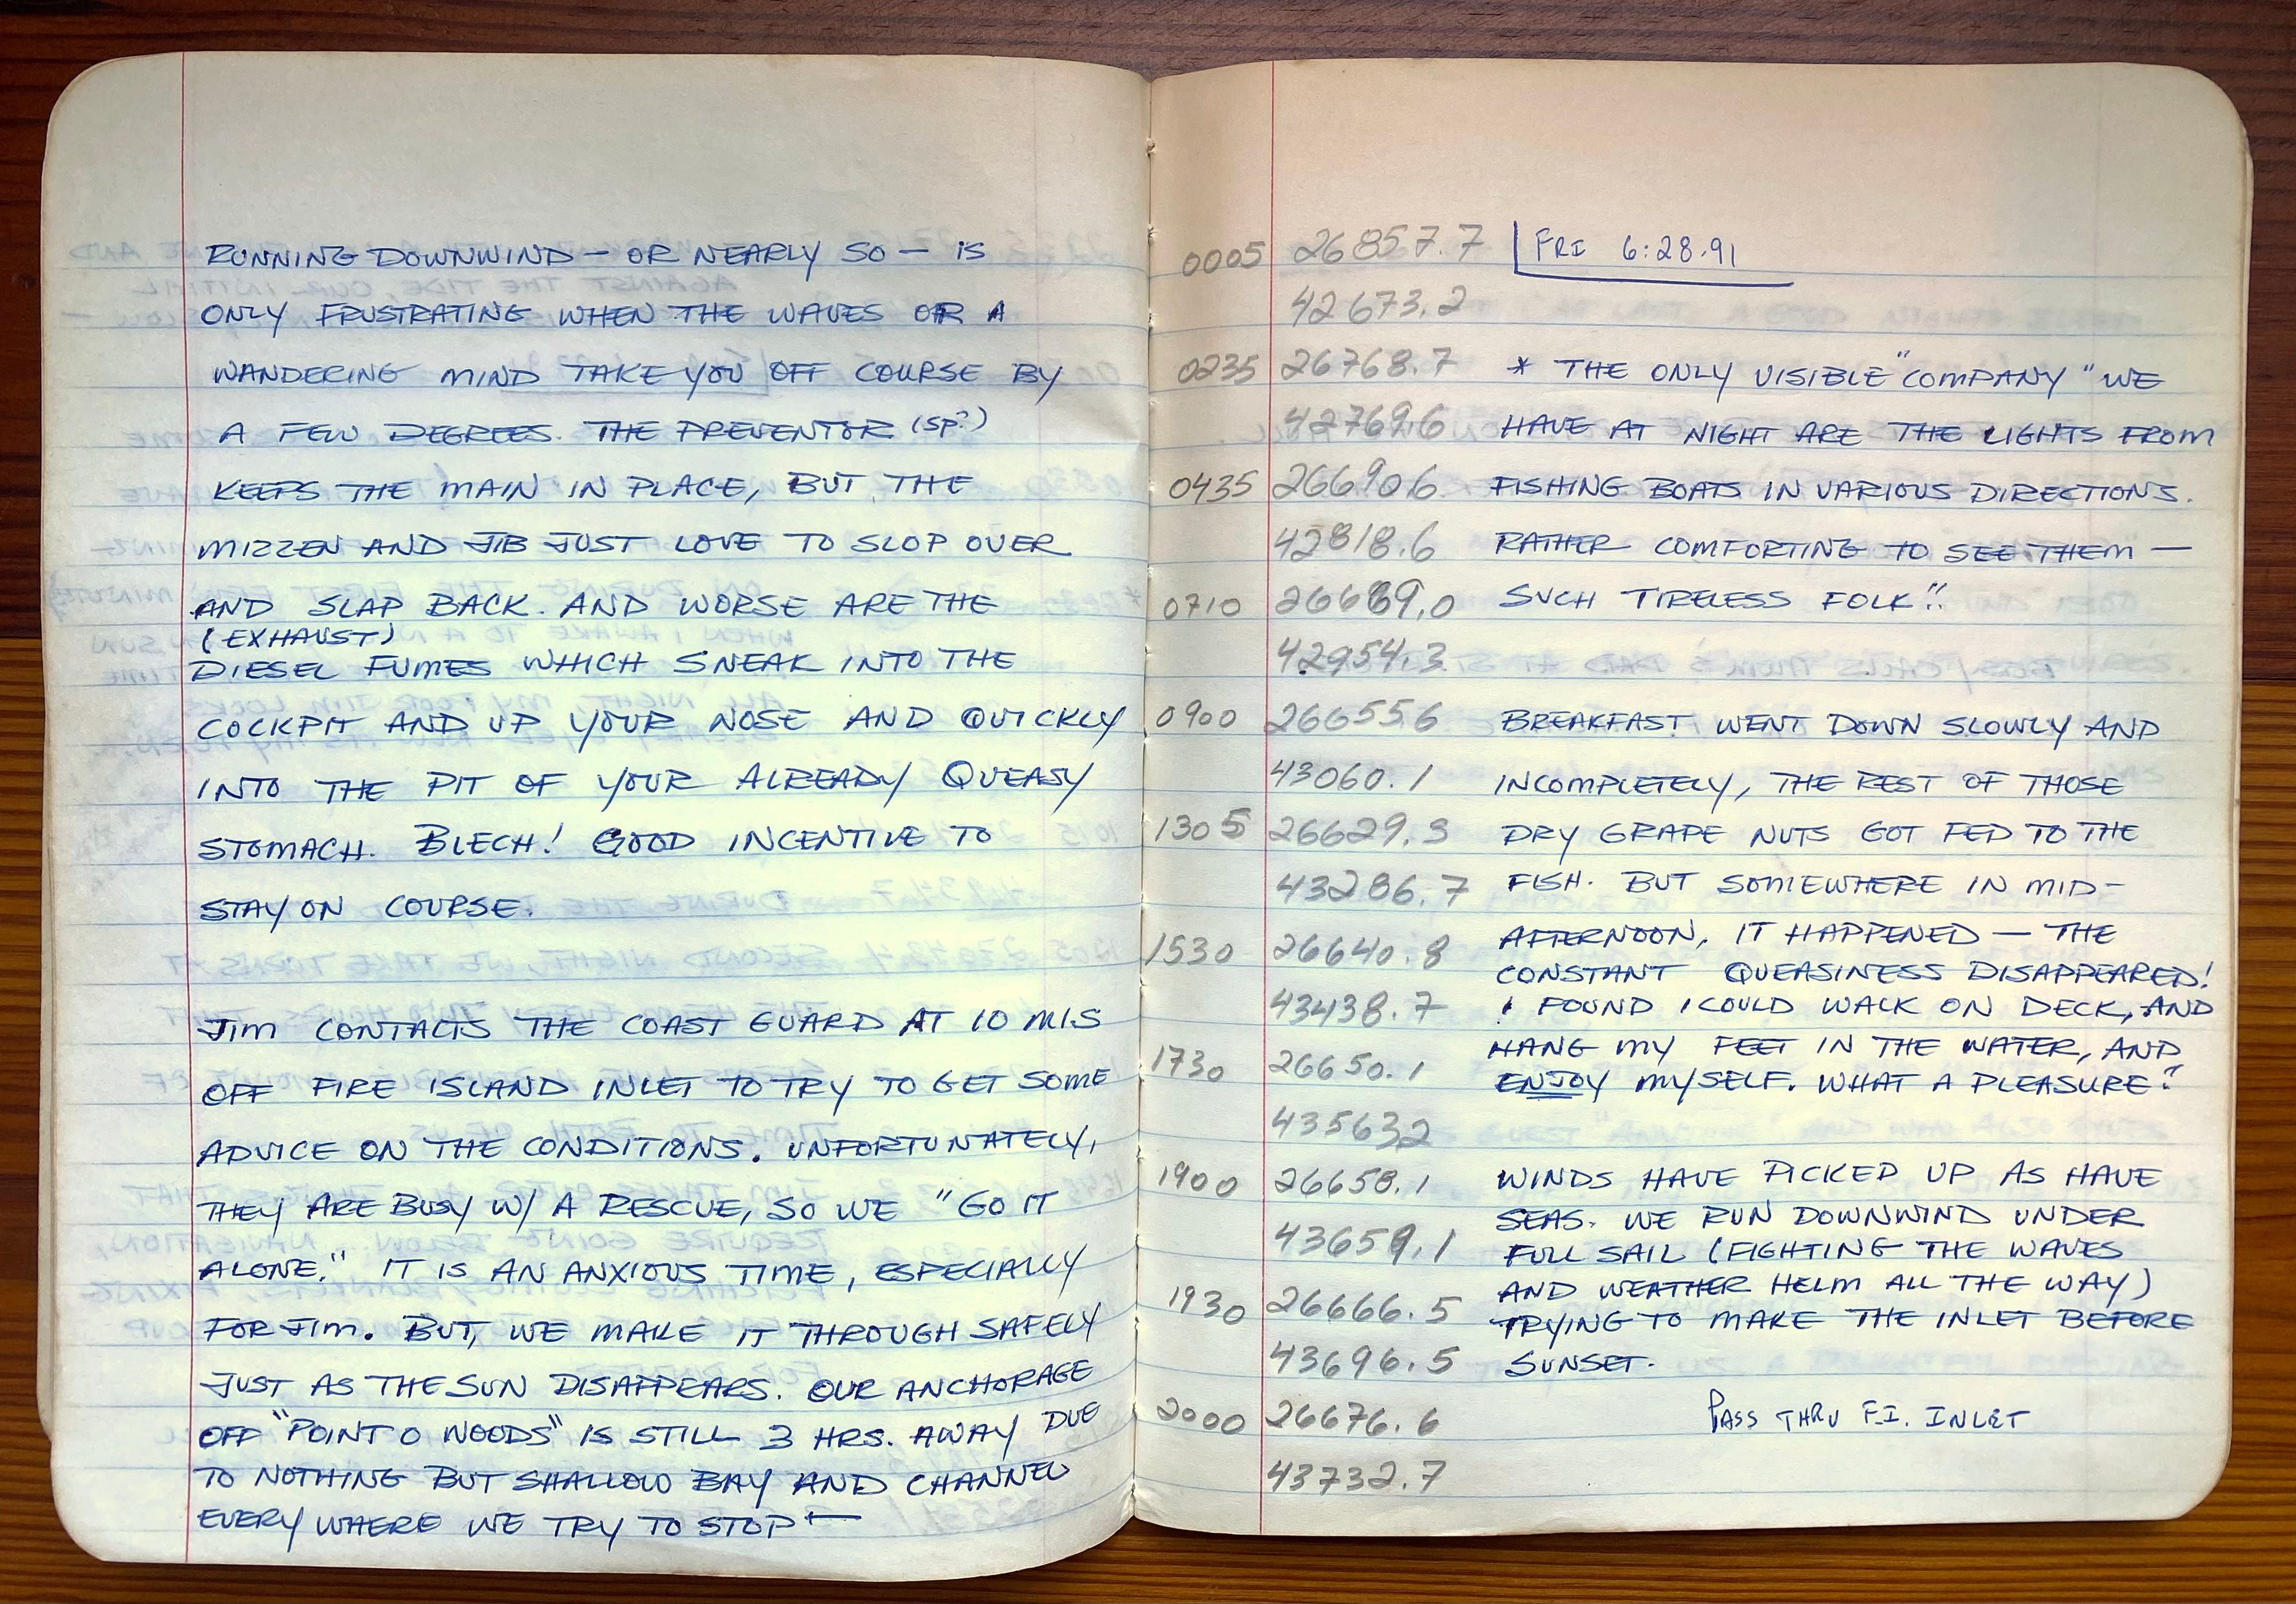 RUNNING DOWNWIND — OR NEARLY SO — IS
ONLY FRUSTRATING WHEN THE WAVES OR A
WANDERING MIND TAKE YOU OFF COURSE BY
A FEW DEGREES. THE PREVENTOR (SP?)
KEEPS THE MAIN IN PLACE, BUT THE
MIZZEN AND JIB JUST LOVE TO SLOP OVER
AND SLAP BACK. AND WORSE ARE THE
(EXHAUST)
DIESEL FUMES WHICH SNEAK INTO THE
COCKPIT AND UP YOUR NOSE AND QUICKLY
INTO THE PIT OF YOUR ALREADY QUEASY
STOMACH. BLECH! GOOD INCENTIVE TO
STAY ON COURSE.
JIM CONTACTS THE COAST GUARD AT 10 MIS
OFF FIRE ISLAND INLET TO TRY TO GET SOME
ADVICE ON THE CONDITIONS. UNFORTUNATELY,
THEY ARE BUSY W/ A RESCUE, SO WE "GO IT
ALONE." IT IS AN ANXIOUS TIME, ESPECIALLY
FOR JIM. BUT, WE MAKE IT THROUGH SAFELY
JUST AS THE SUN DISAPPEARS. OUR ANCHORAGE
OFF "POINT O WOODS" IS STILL 3 HRS. AWAY DUE
TO NOTHING BUT SHALLOW BAY AND CHANNEL
EVERY WHERE WE TRY TO STOP —
0005 26857.7 FRI 6:28.91
42673.2
0235 26768.7 * THE ONLY VISIBLE "COMPANY" WE
42769.6 HAVE AT NIGHT ARE THE LIGHTS FROM
0435 26690.6 FISHING BOATS IN VARIOUS DIRECTIONS.
42818.6 RATHER COMFORTING TO SEE THEM —
0710 26689.0 SUCH TIRELESS FOLK!!
42954.3
0900 26655.6 BREAKFAST WENT DOWN SLOWLY AND
43060.1 INCOMPLETELY, THE REST OF THOSE
1305 26629.3 DRY GRAPE NUTS GOT FED TO THE
43286.7 FISH. BUT SOMEWHERE IN MID-
AFTERNOON, IT HAPPENED — THE
1530 26640.8
CONSTANT QUEASINESS DISAPPEARED!
43438.7 I FOUND I COULD WALK ON DECK, AND
HANG MY FEET IN THE WATER, AND
1730 26650.1
ENJOY MYSELF. WHAT A PLEASURE!!
43563.2
1900 26658.1 WINDS HAVE PICKED UP AS HAVE
SEAS. WE RUN DOWNWIND UNDER
43659.1 FULL SAIL (FIGHTING THE WAVES
AND WEATHER HELM ALL THE WAY)
1930 26666.5 TRYING TO MAKE THE INLET BEFORE
43696.5 SUNSET.
2000 26676.6 PASS THRU F.I. INLET
43732.7